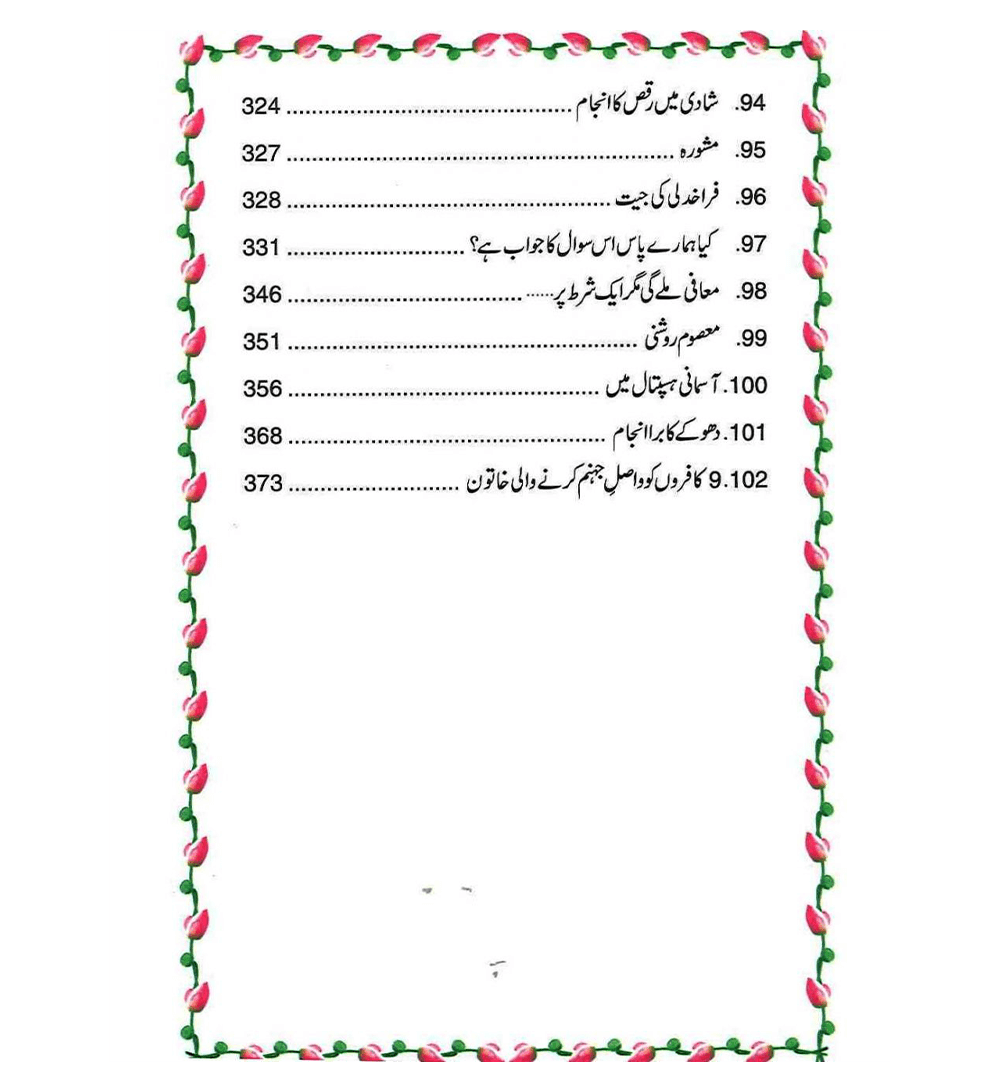 94. شادی میں رقص کا انجام ........................................ 324
95. مشورہ ........................................ 327
96. فراخدلی کی جیت ........................................ 328
97. کیا ہمارے پاس اس سوال کا جواب ہے؟ ........................................ 331
98. معافی ملے گی مگر ایک شرط پر..... ........................................ 346
99. معصوم روشنی ........................................ 351
100. آسمانی ہسپتال میں ........................................ 356
101. دھوکے کا برا انجام ........................................ 368
102. 9 کافروں کو واصلِ جہنم کرنے والی خاتون ........................................ 373